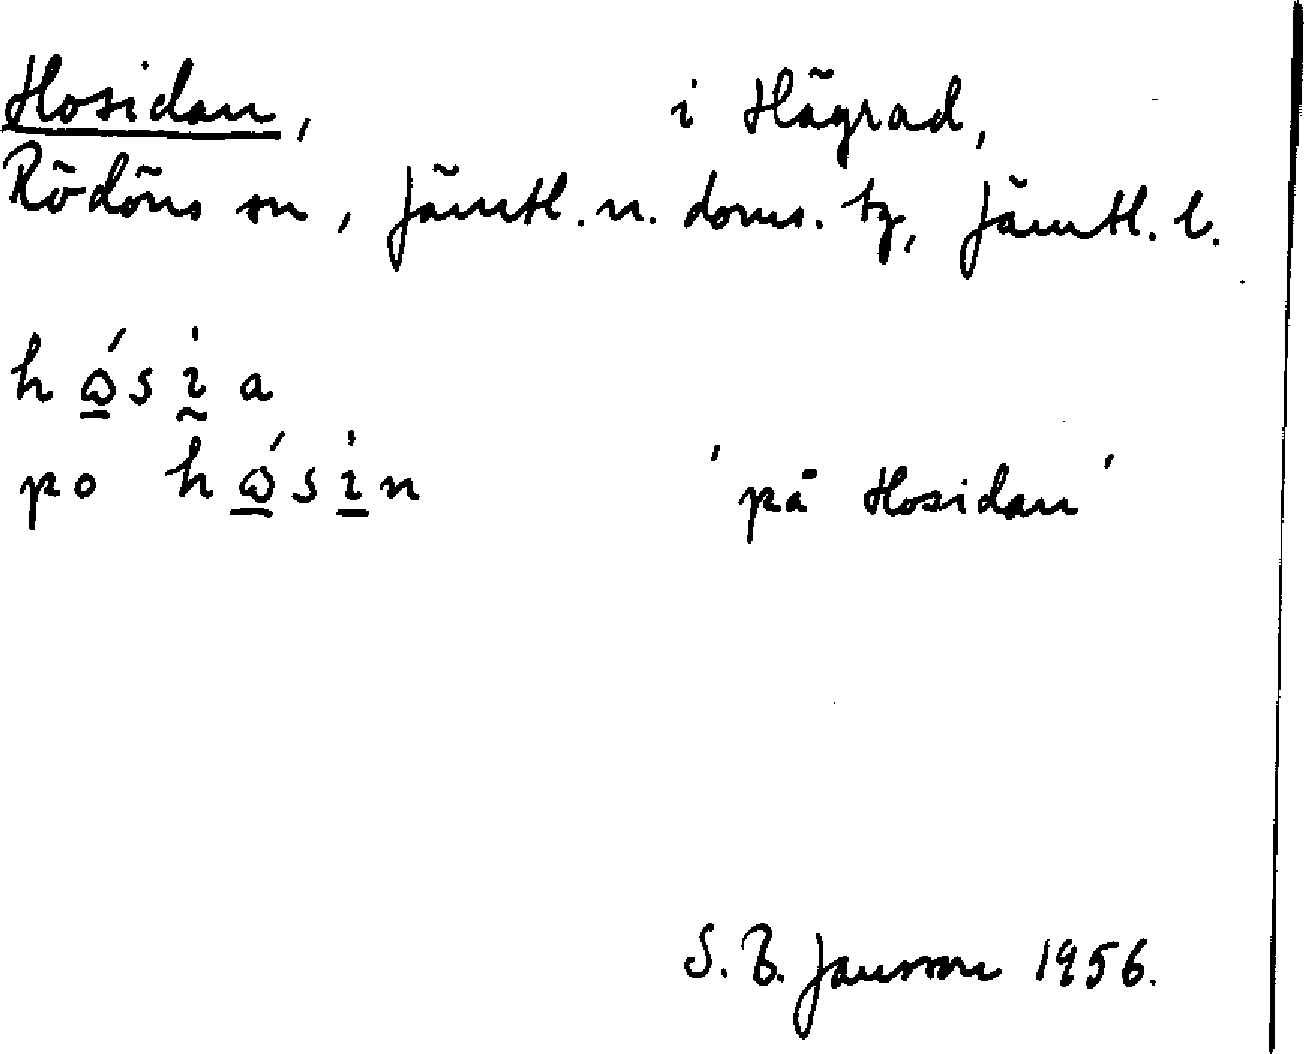 Hosidan, i Hägrad,
Rödöns sn, Jämtl. n. doms. tg, Jämtl. l.
po 'på Hosidan'
S. B. Jansson 1956.